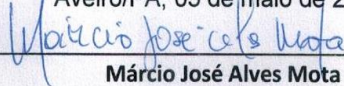 Aveiro/PA, 05 de maio de 2
Márcio José Alves Mota
Márcio José Alves Mota